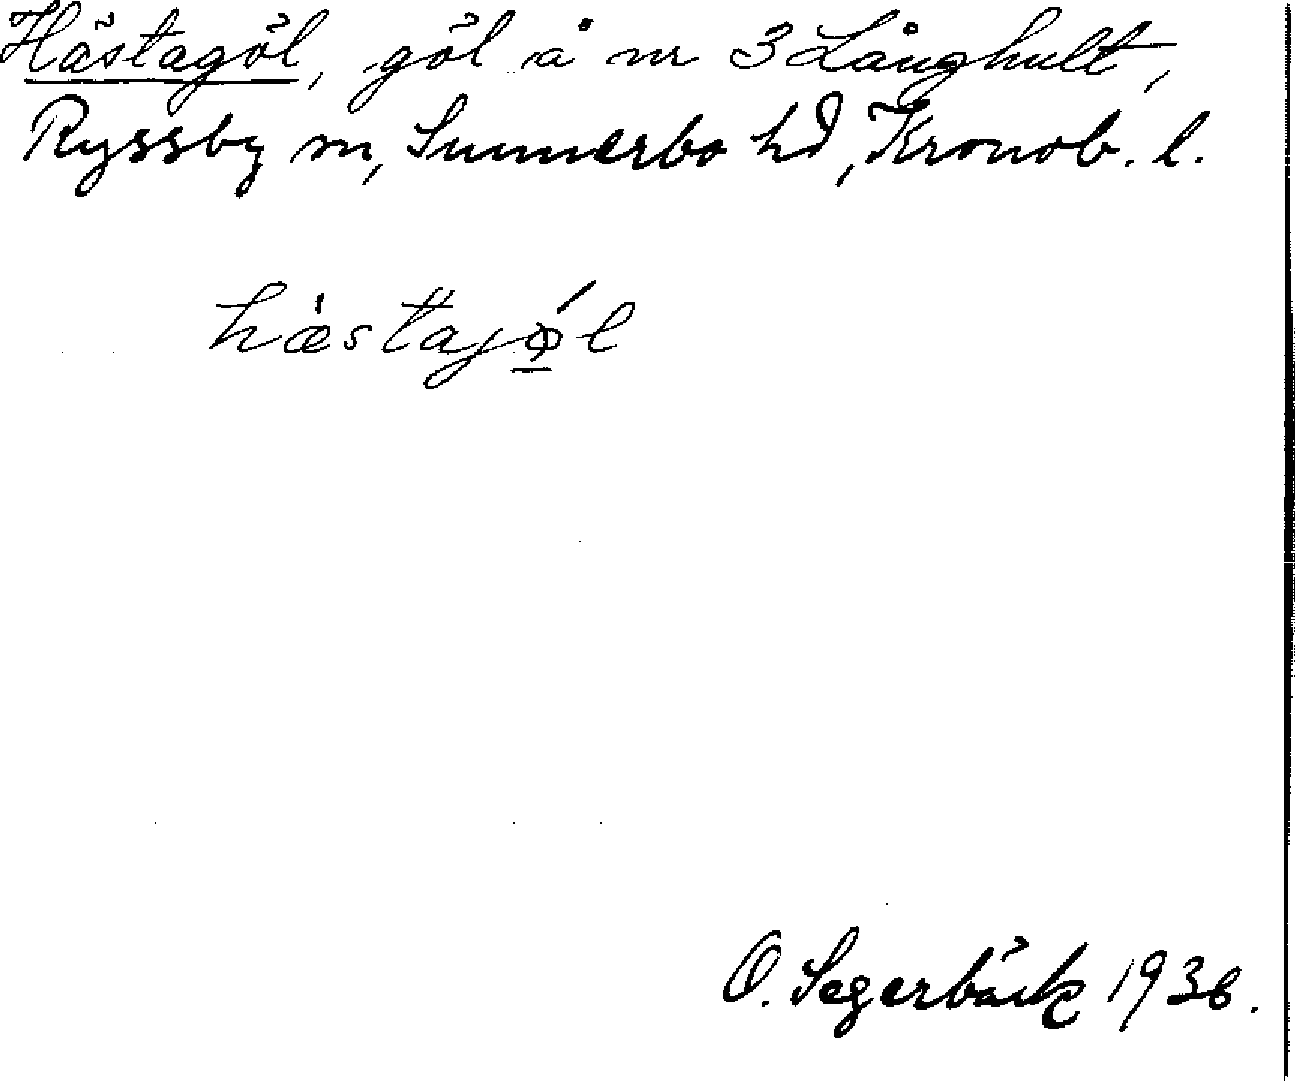 Hästagöl, göl å nr 3 Långhult,
Ryssby sn, Sunnerbo hd, Kronob. l.
hæ̍stajǿ̲l
O. Segerbäck 1936.